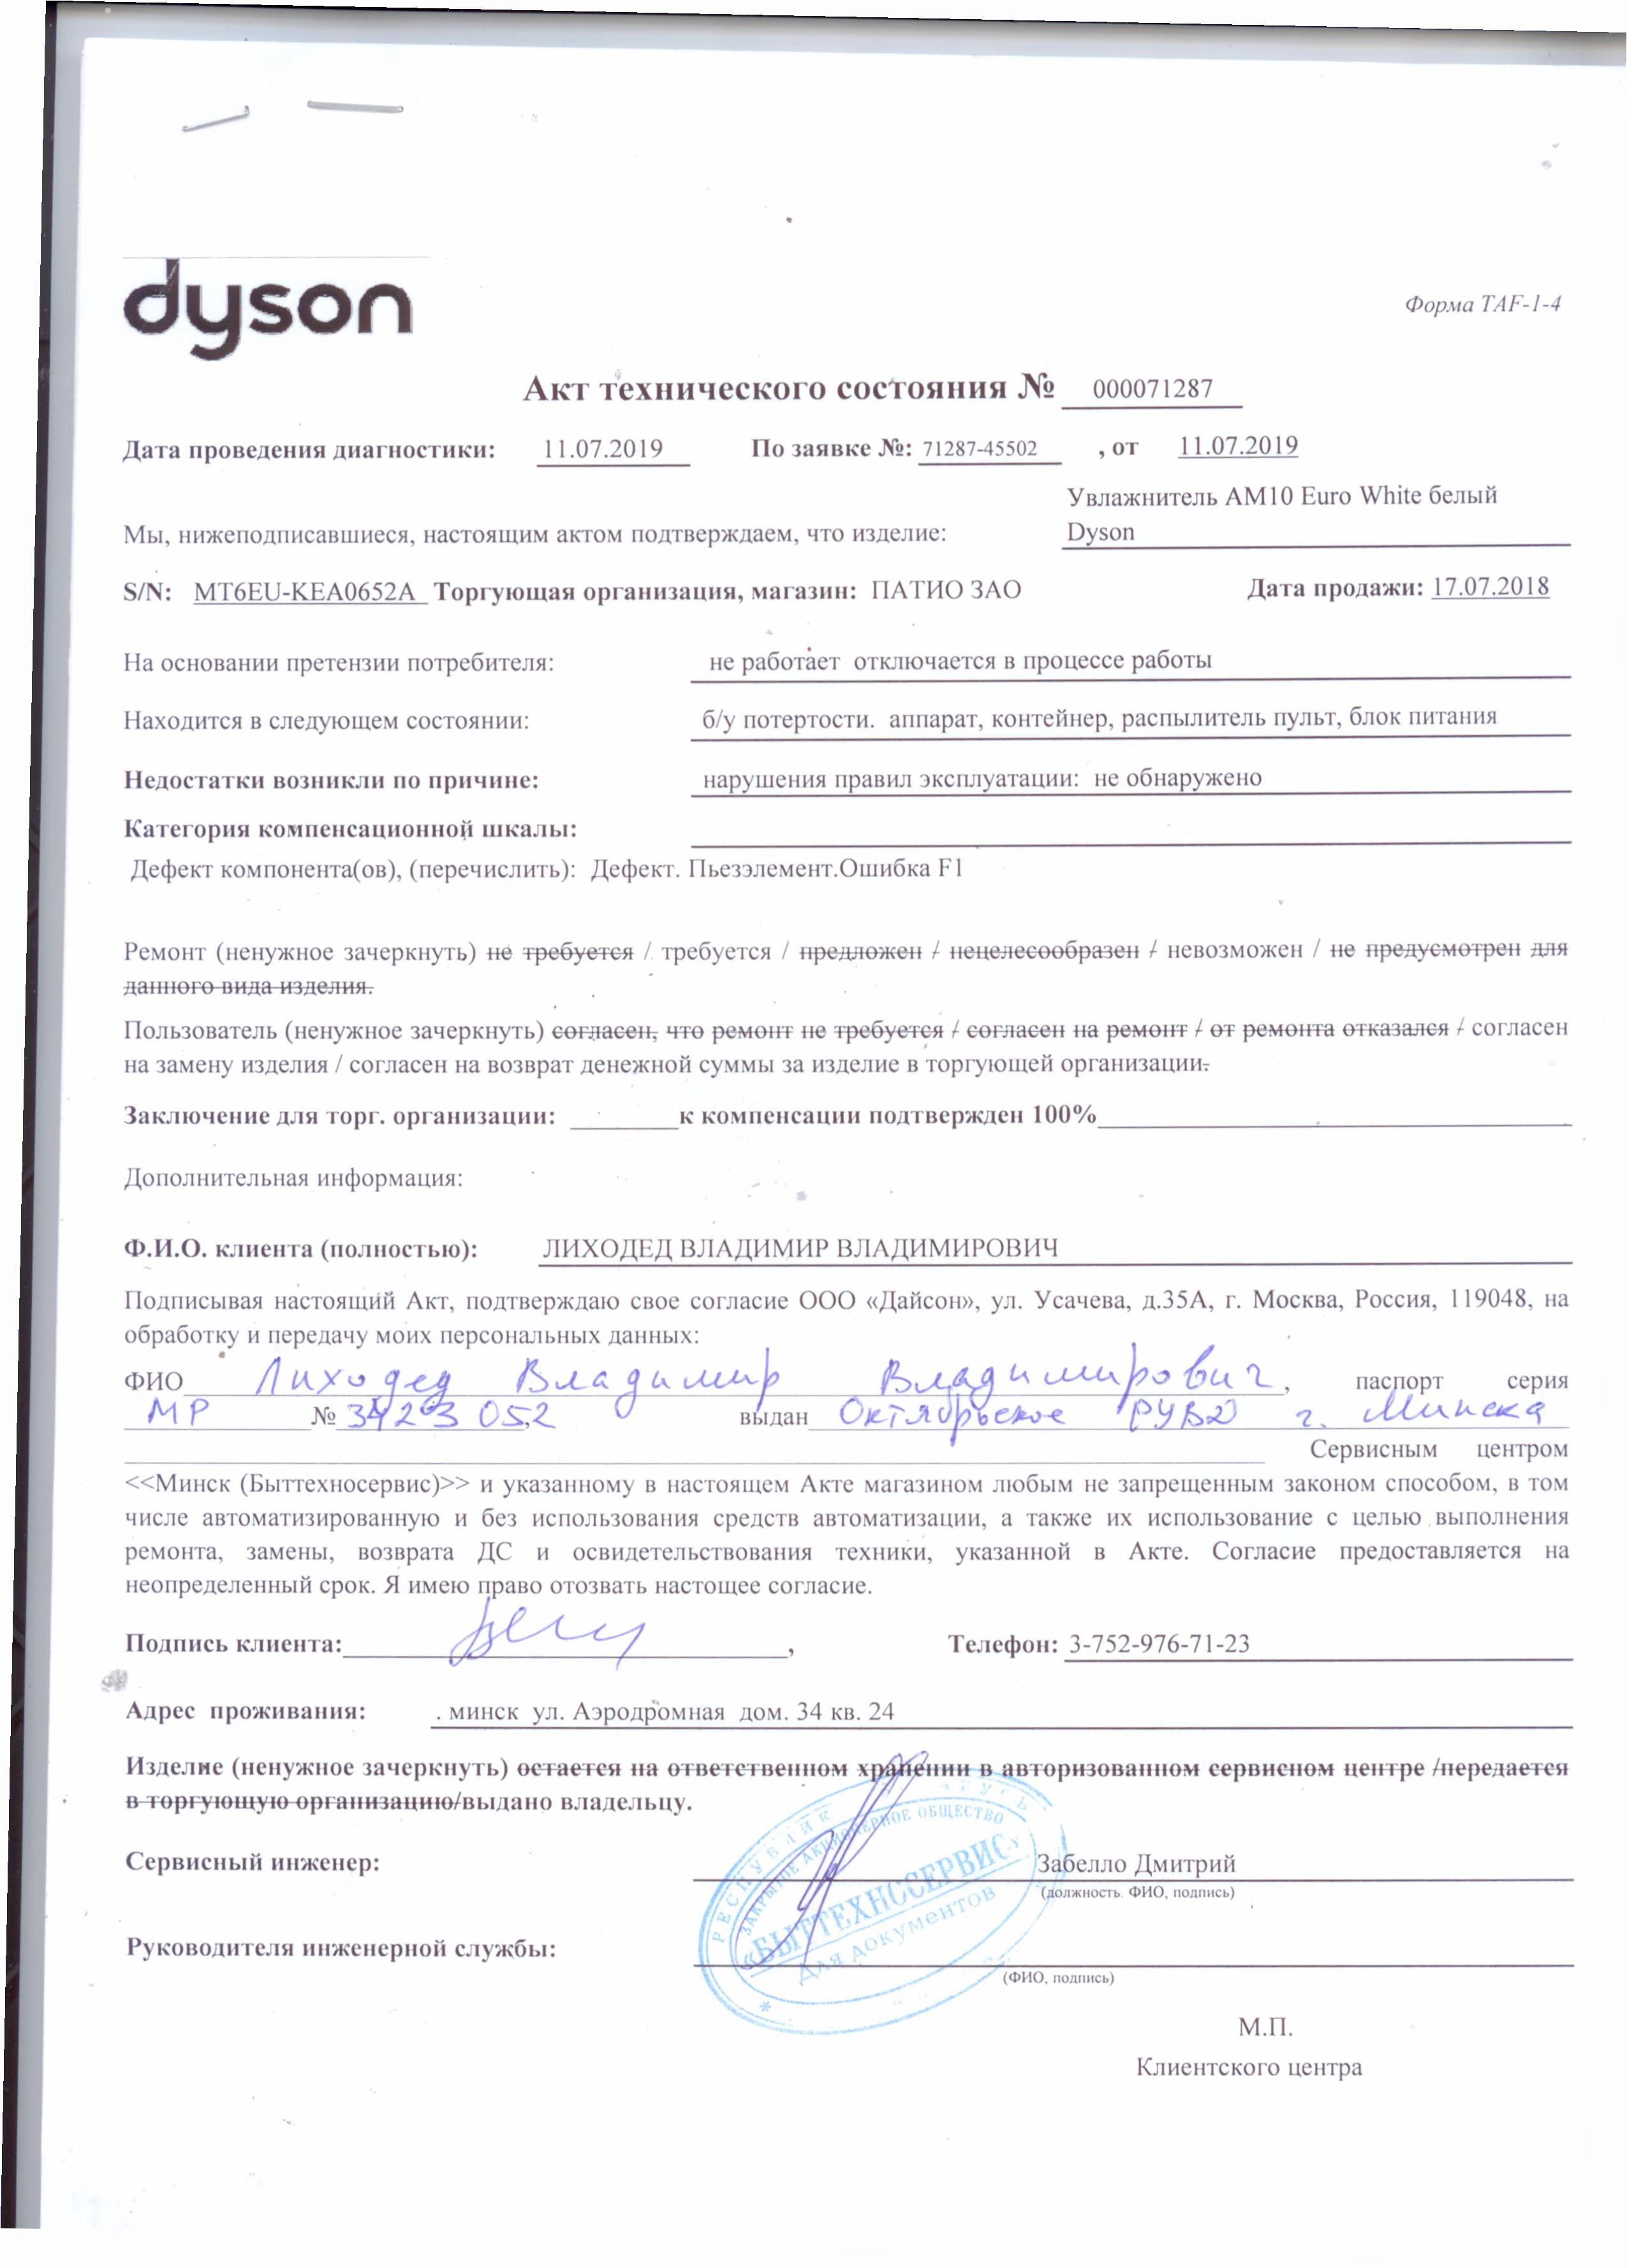 dyson
Форма TAF-1-4
Акт технического состояния № 000071287
Дата проведения диагностики: 11.07.2019 По заявке №: 71287-45502 , от 11.07.2019
Увлажнитель AM10 Euro White белый
Мы, нижеподписавшиеся, настоящим актом подтверждаем, что изделие: Dyson
S/N: MT6EU-KEA0652A Торгующая организация, магазин: ПАТИО ЗАО Дата продажи: 17.07.2018
На основании претензии потребителя: не работает отключается в процессе работы
Находится в следующем состоянии: б/у потертости. аппарат, контейнер, распылитель пульт, блок питания
Недостатки возникли по причине: нарушения правил эксплуатации: не обнаружено
Категория компенсационной шкалы:
Дефект компонента(ов), (перечислить): Дефект. Пьезэлемент.Ошибка F1
Ремонт (ненужное зачеркнуть) не требуется / требуется / предложен / нецелесообразен / невозможен / не предусмотрен для
данного вида изделия.
Пользователь (ненужное зачеркнуть) согласен, что ремонт не требуется / согласен на ремонт / от ремонта отказался / согласен
на замену изделия / согласен на возврат денежной суммы за изделие в торгующей организации.
Заключение для торг. организации: к компенсации подтвержден 100%
Дополнительная информация:
Ф.И.О. клиента (полностью): ЛИХОДЕД ВЛАДИМИР ВЛАДИМИРОВИЧ
Подписывая настоящий Акт, подтверждаю свое согласие ООО «Дайсон», ул. Усачева, д.35А, г. Москва, Россия, 119048, на
обработку и передачу моих персональных данных:
ФИО Лиходед Владимир Владимирович, паспорт серия
МР № 3423052, выдан Октябрьское РУВД г. Минска
Сервисным центром
<<Минск (Быттехносервис)>> и указанному в настоящем Акте магазином любым не запрещенным законом способом, в том
числе автоматизированную и без использования средств автоматизации, а также их использование с целью выполнения
ремонта, замены, возврата ДС и освидетельствования техники, указанной в Акте. Согласие предоставляется на
неопределенный срок. Я имею право отозвать настощее согласие.
Подпись клиента: , Телефон: 3-752-976-71-23
Адрес проживания: . минск ул. Аэродромная дом. 34 кв. 24
Изделие (ненужное зачеркнуть) остается на ответственном хранении в авторизованном сервисном центре /передается
в торгующую организацию/выдано владельцу.
РЕСПУБЛИКА БЕЛАРУСЬ
ЗАКРЫТОЕ АКЦИОНЕРНОЕ ОБЩЕСТВО
«БЫТТЕХНОСЕРВИС»
Для документов
Сервисный инженер: Забелло Дмитрий
(должность. ФИО, подпись)
Руководителя инженерной службы:
(ФИО, подпись)
М.П.
Клиентского центра